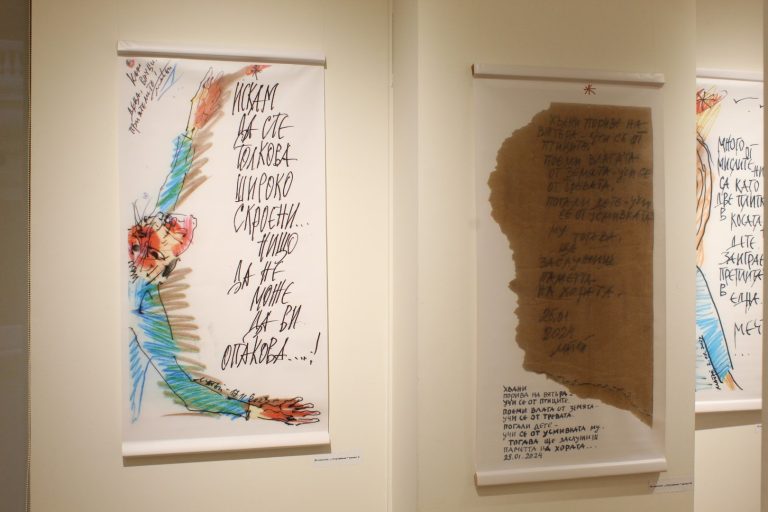 ИСКАМ
ДА СТЕ
ТОЛКОВА
ШИРОКО
СКРОЕНИ...
НИЩО
ДА НЕ
МОЖЕ
ДА ВИ
ОПАКОВА....!
ХВАНИ ПОРИВА НА
ВЯТЪРА - УЧИ СЕ ОТ
ПТИЦИТЕ.
ПОЕМИ ВЛАГАТА
ОТ ЗЕМЯТА - УЧИ СЕ
ОТ ТРЕВАТА.
ПОГАЛИ ДЕТЕ - УЧИ
СЕ ОТ УСМИВКАТА
МУ.
ТОГАВА
ЩЕ
ЗАСЛУЖИШ
ПАМЕТТА
НА ХОРАТА.
25.01
2024
ХВАНИ
ПОРИВА НА ВЯТЪРА -
УЧИ СЕ ОТ ПТИЦИТЕ.
ПОЕМИ ВЛАГАТА ОТ ЗЕМЯТА -
УЧИ СЕ ОТ ТРЕВАТА.
ПОГАЛИ ДЕТЕ -
УЧИ СЕ ОТ УСМИВКАТА МУ.
ТОГАВА ЩЕ ЗАСЛУЖИШ
ПАМЕТТА НА ХОРАТА...
25.01.2024
МНОГО
ОТ
МИСЛИТЕ НИ
СА КАТО
ПЛИТКИ
В
КОСАТА.
ДЕТЕ
ЗАИГРАЕ
В
ЕДНА.
МЕЧ